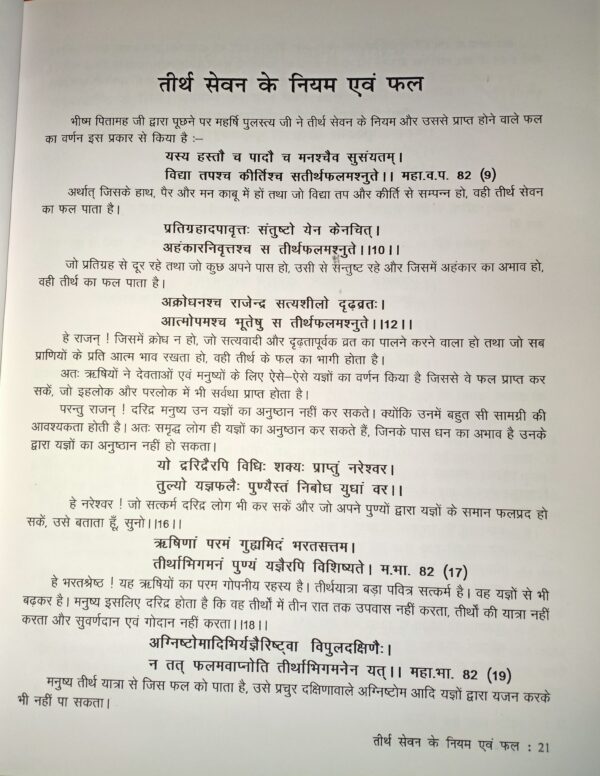 तीर्थ सेवन के नियम एवं फल
भीष्म पितामह जी द्वारा पूछने पर महर्षि पुलस्त्य जी ने तीर्थ सेवन के नियम और उससे प्राप्त होने वाले फल
का वर्णन इस प्रकार से किया है :–
यस्य हस्तौ च पादौ च मनश्चैव सुसंयतम्।
विद्या तपश्च कीर्तिश्च सतीर्थफलमश्नुते।। महा.व.प. 82 (9)
अर्थात् जिसके हाथ, पैर और मन काबू में हों तथा जो विद्या तप और कीर्ति से सम्पन्न हो, वही तीर्थ सेवन
का फल पाता है।
प्रतिग्रहादपावृत्तः संतुष्टो येन केनचित्।
अहंकारनिवृत्तश्च स तीर्थफलमश्नुते।।10।।
जो प्रतिग्रह से दूर रहे तथा जो कुछ अपने पास हो, उसी से सन्तुष्ट रहे और जिसमें अहंकार का अभाव हो,
वही तीर्थ का फल पाता है।
अक्रोधनश्च राजेन्द्र सत्यशीलो दृढ़व्रतः।
आत्मोपमश्च भूतेषु स तीर्थफलमश्नुते।।12।।
हे राजन् ! जिसमें क्रोध न हो, जो सत्यवादी और दृढ़तापूर्वक व्रत का पालने करने वाला हो तथा जो सब
प्राणियों के प्रति आत्म भाव रखता हो, वही तीर्थ के फल का भागी होता है।
अतः ऋषियों ने देवताओं एवं मनुष्यों के लिए ऐसे–ऐसे यज्ञों का वर्णन किया है जिससे वे फल प्राप्त कर
सकें, जो इहलोक और परलोक में भी सर्वथा प्राप्त होता है।
परन्तु राजन् ! दरिद्र मनुष्य उन यज्ञों का अनुष्ठान नहीं कर सकते। क्योंकि उनमें बहुत सी सामग्री की
आवश्यकता होती है। अतः समृद्ध लोग ही यज्ञों का अनुष्ठान कर सकते हैं, जिनके पास धन का अभाव है उनके
द्वारा यज्ञों का अनुष्ठान नहीं हो सकता।
यो द्ररिद्रैरपि विधिः शक्यः प्राप्तुं नरेश्वर।
तुल्यो यज्ञफलैः पुण्यैस्तं निबोध युधां वर।।
हे नरेश्वर ! जो सत्कर्म दरिद्र लोग भी कर सकें और जो अपने पुण्यों द्वारा यज्ञों के समान फलप्रद हो
सकें, उसे बताता हूँ, सुनो।।16।।
ऋषिणां परमं गुह्यमिदं भरतसत्तम।
तीर्थाभिगमनं पुण्यं यज्ञैरपि विशिष्यते। म.भा. 82 (17)
हे भरतश्रेष्ठ ! यह ऋषियों का परम गोपनीय रहस्य है। तीर्थयात्रा बड़ा पवित्र सत्कर्म है। वह यज्ञों से भी
बढ़कर है। मनुष्य इसलिए दरिद्र होता है कि वह तीर्थों में तीन रात तक उपवास नहीं करता, तीर्थों की यात्रा नहीं
करता और सुवर्णदान एवं गोदान नहीं करता।।18।।
अग्निष्टोमादिमिर्यज्ञैरिष्ट्वा विपुलदक्षिणैः।
न तत् फलमवाप्नोति तीर्थाभिगमनेन यत्।। महा.भा. 82 (19)
मनुष्य तीर्थ यात्रा से जिस फल को पाता है, उसे प्रचुर दक्षिणावाले अग्निष्टोम आदि यज्ञों द्वारा यजन करके
भी नहीं पा सकता।
तीर्थ सेवन के नियम एवं फल : 21